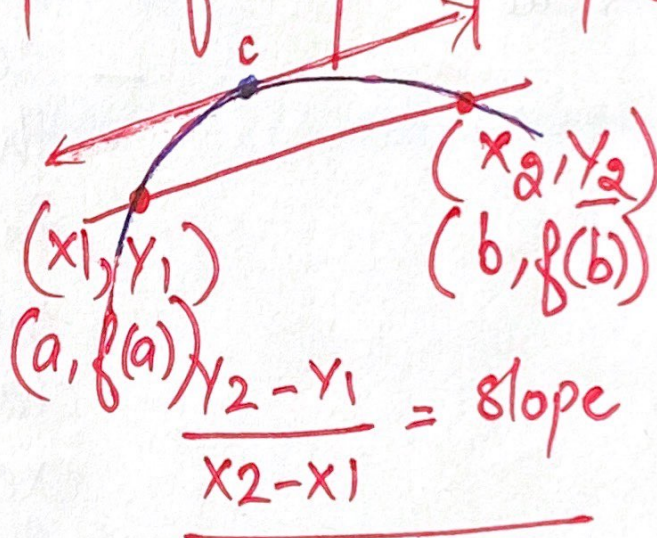 c
(x2, y2)
(b, f(b))
(x1, y1)
(a, f(a))
y2 - y1
x2 - x1
= slope